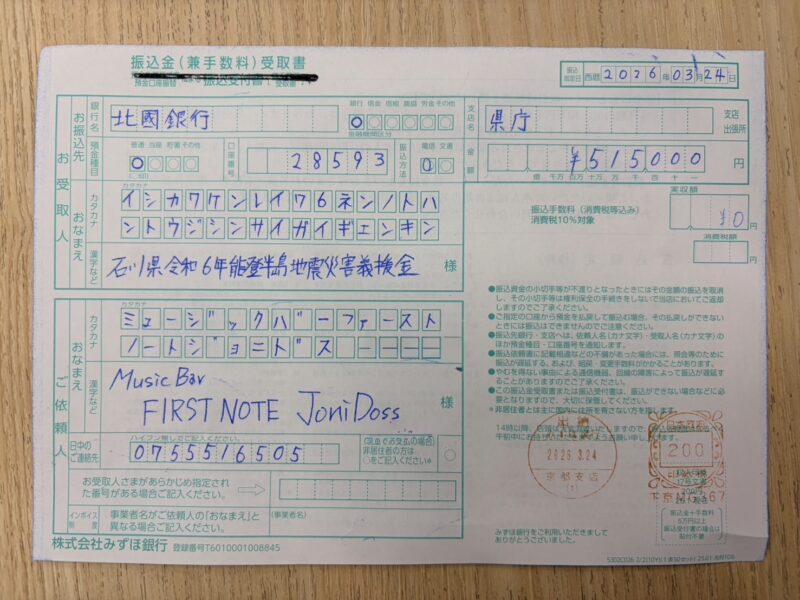 振込金（兼手数料）受取書
振込指定日 西暦 2026年 03月 24日
お振込先
銀行名 北國銀行
銀行 信金 信組 農協 労金 その他
金融機関区分
支店名 県庁 支店 出張所
預金種目 普通 当座 貯蓄 その他
口座番号 28593
振込方法 電信 文書
金額 ¥515000 円
億 千万 百万 十万 万 千 百 十 一
お受取人
おなまえ
カタカナ
イシカワケンレイワ6ネンノトハ
ントウジシンサイガイギエンキン
漢字など 石川県令和6年能登半島地震災害義援金 様
実収額
振込手数料（消費税等込み） ¥0 円
消費税10%対象
消費税額 円
ご依頼人
おなまえ
カタカナ
ミュージックバーファースト
ノートジョニドス
漢字など Music Bar
FIRST NOTE JoniDoss 様
日中のご連絡先 ハイフン無しでご記入ください。
0755516505
（現金でお支払の場合）
非居住者の方は
○をご記入ください*
お受取人さまがあらかじめ指定された番号がある場合ご記入ください。
インボイス制度 事業者名がご依頼人の「おなまえ」と異なる場合ご記入ください。 （事業者名）
株式会社みずほ銀行 登録番号T6010001008845
●振込資金の小切手等が不渡りとなったときにはその金額の振込を取消
し、その小切手等は権利保全の手続きをしないで当店において返却
しますのでご了承ください。
●ご指定の口座から預金を払戻して振込む場合、その払戻しができない
ときには振込はできませんのでご注意ください。
●お振込先銀行・支店へは、依頼人名（カナ文字）・受取人名（カナ文字）の
ほか預金種目・口座番号を通知します。
●振込依頼書に記載相違などの不備があった場合には、照会等のために
振込が遅延する、および、組戻・変更手数料がかかることがあります。
●やむを得ない事由による通信機器、回線の障害によって振込が遅延
することがありますのでご了承ください。
●この振込金受取書または振込受付書は、振込ができない場合などに必
要となりますので、大切に保管してください。
*非居住者とは主に国内に住所を有さない方を指します。
2026.3.24
京都支店
200
振込金+手数料
5万円以上
振込受付書の場合は
貼付不要
みずほ銀行をご利用いただきまして
ありがとうございました。